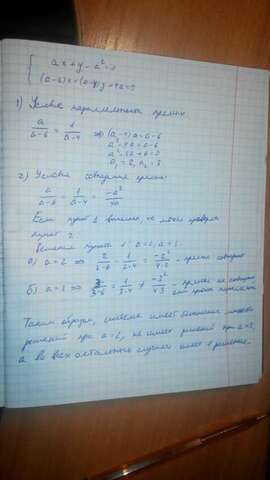 ax + y - a² = 0
(a-6)x + (a-4)y + 4a = 0
1) Условие параллельности прямых
a/(a-6) = 1/(a-4) ⇒ (a-4)a = a-6
a² - 4a = a - 6
a² - 5a + 6 = 0
a₁ = 2, a₂ = 3
2) Условие совпадения прямых
a/(a-6) = 1/(a-4) = -a²/4a
Если пункт 1 выполнен, то
пункт 2.
пункта 1: a=2, a=3.
а) a = 2 ⇒ 2/(2-6) = 1/(2-4) = -2²/(4·2) - прямые совпадают
б) a = 3 ⇒ 3/(3-6) = 1/(3-4) ≠ -3²/(4·3) - прямые не совпадают
Таким образом, система имеет бесконечно много
решений при a=2, не имеет решений при a=3,
а во всех остальных случаях имеет 1 решение.